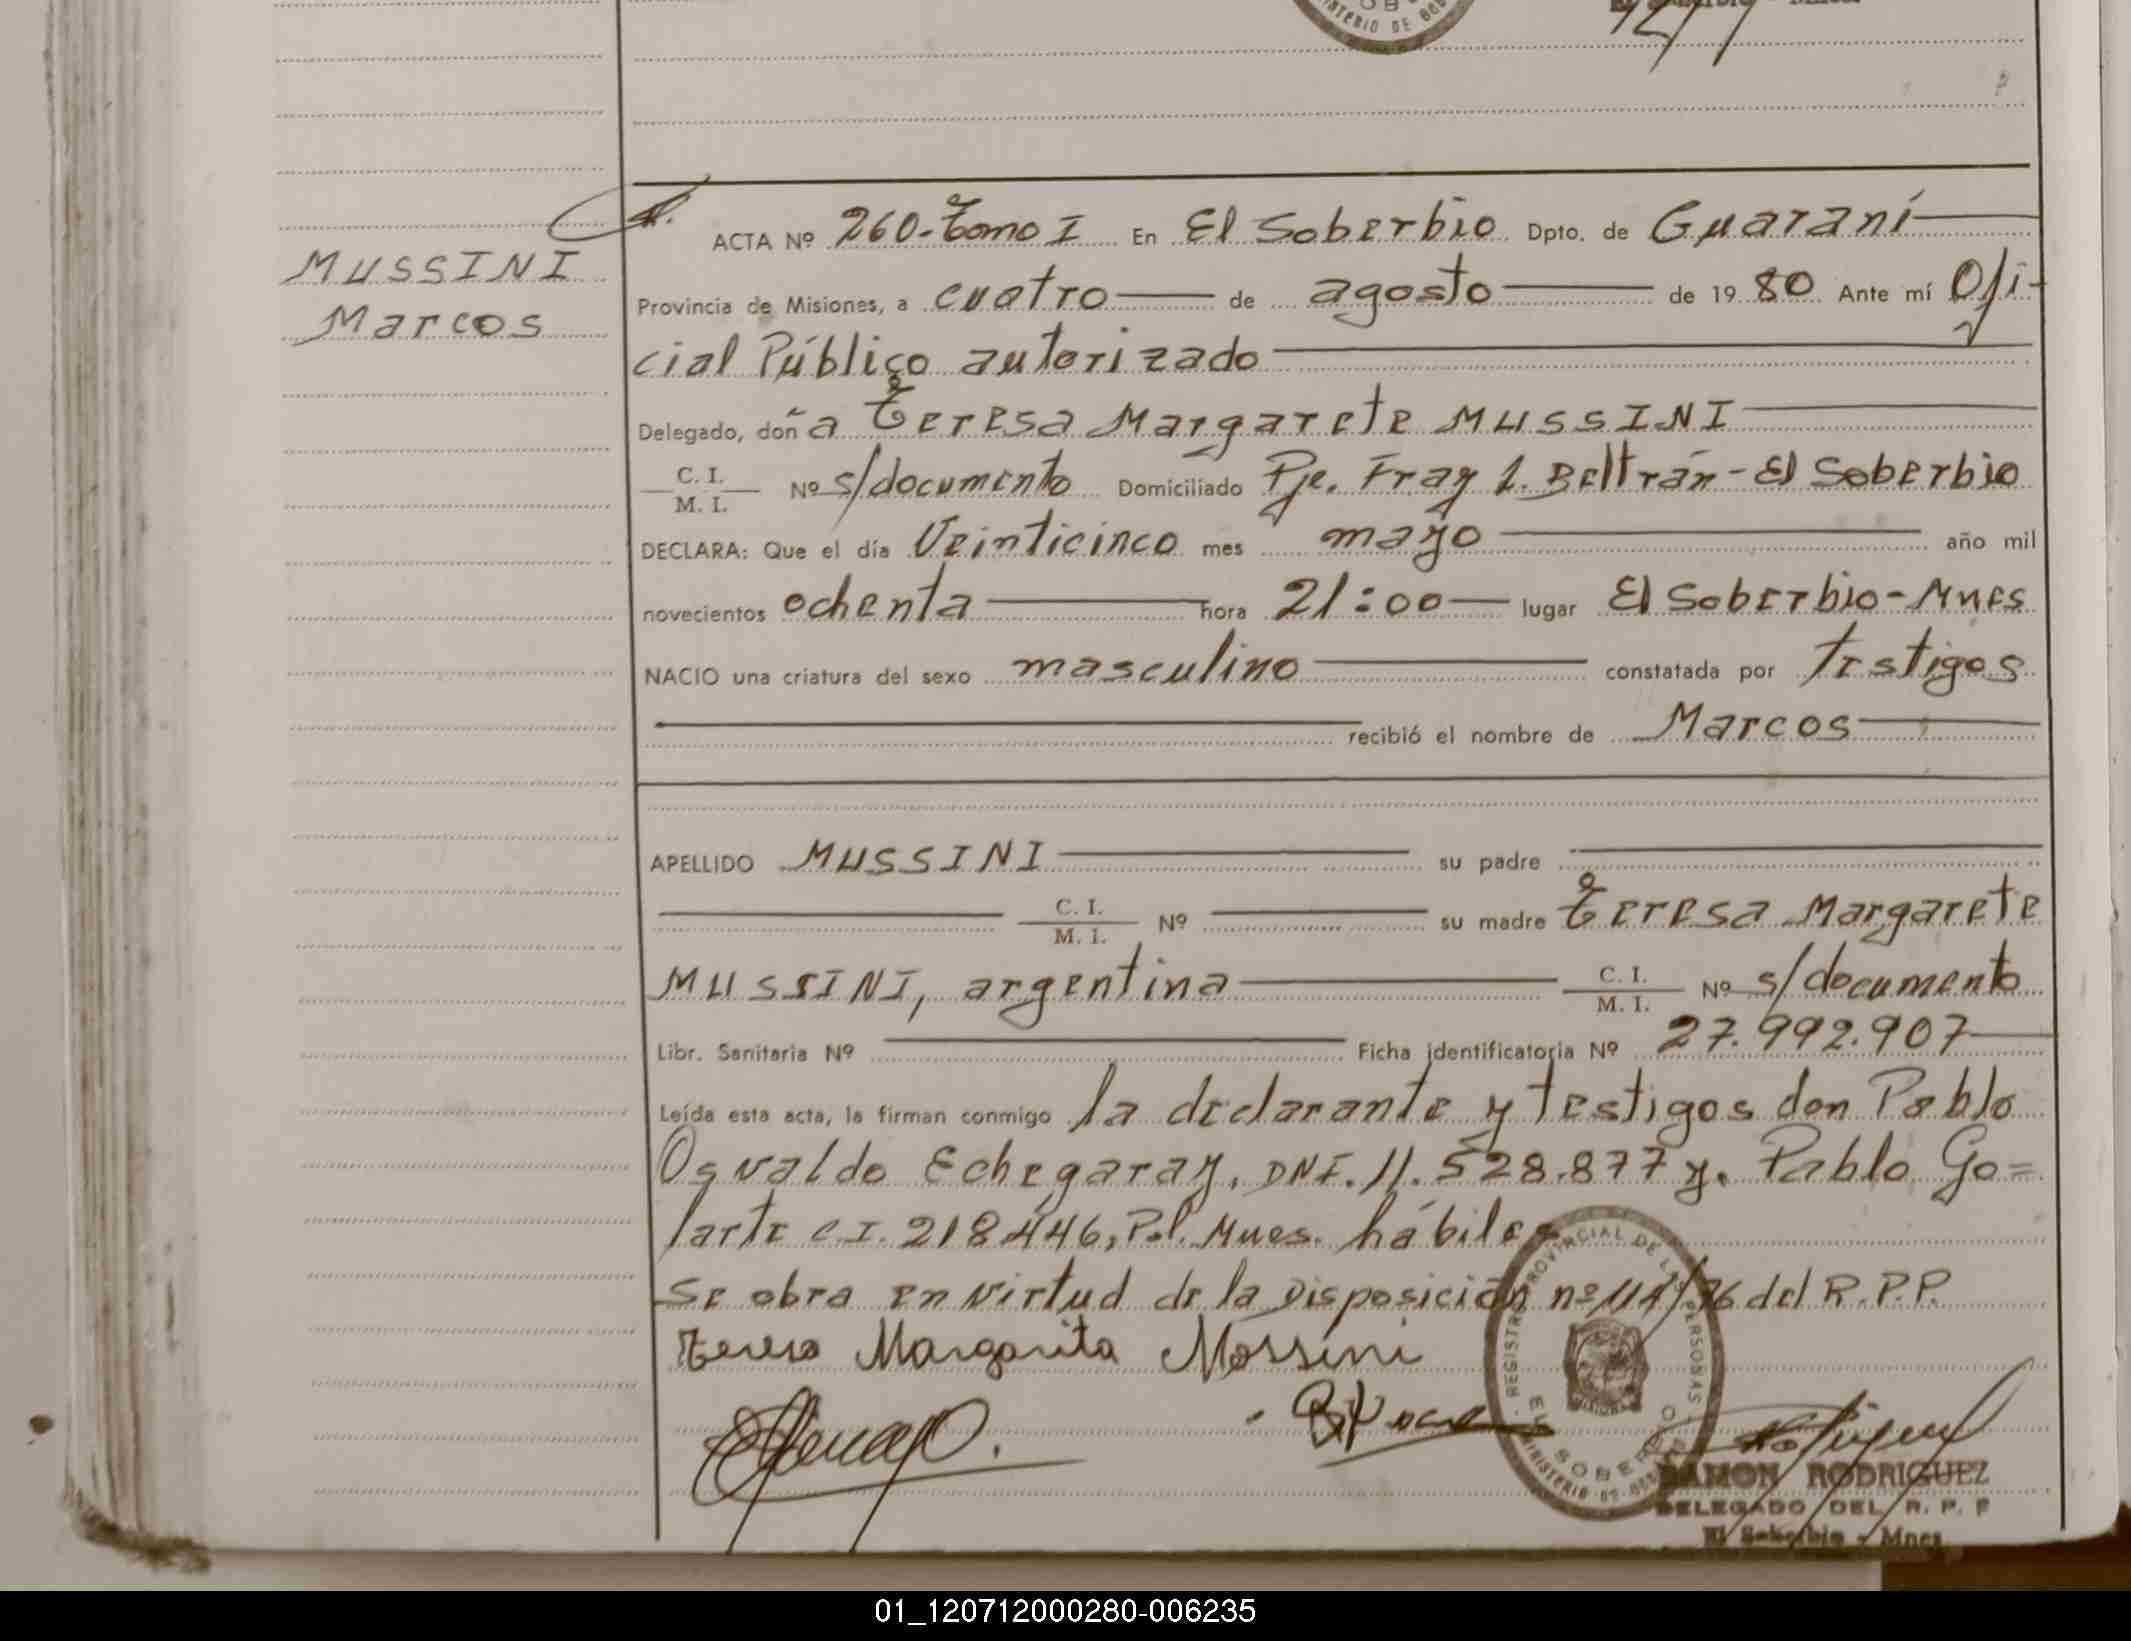 MINISTERIO DE GOB
El Soberbio - Mnes
MUSSINI
Marcos
ACTA Nº 260-Tomo I En El Soberbio Dpto. de Guaraní
Provincia de Misiones, a cuatro de agosto de 1980 Ante mí Ofi-
cial Público autorizado
Delegado, doña Teresa Margarete MUSSINI
C. I.
M. I. Nº s/documento Domiciliado Pje. Fray L. Beltrán - El Soberbio
DECLARA: Que el día Veinticinco mes mayo año mil
novecientos ochenta hora 21:00 lugar El Soberbio-Mnes
NACIO una criatura del sexo masculino constatada por testigos
recibió el nombre de Marcos
APELLIDO MUSSINI su padre
C. I.
M. I. Nº su madre Teresa Margarete
MUSSINI, argentina C. I.
M. I. Nº s/documento
Libr. Sanitaria Nº Ficha identificatoria Nº 27.992.907
Leída esta acta, la firman conmigo la declarante y testigos don Pablo
Osvaldo Echegaray, DNI. 11.528.877 y. Pablo Go=
larte C.I. 218446, Pol. Mnes. hábiles
Se obra en virtud de la Disposición nº 114/76 del R.P.P.
Teresa Margarita Mossini
REGISTRO PROVINCIAL DE LAS PERSONAS
EL SOBERBIO
MINISTERIO DE GOB
RAMON RODRIGUEZ
DELEGADO DEL R. P. P
El Soberbio - Mnes
01_120712000280-006235